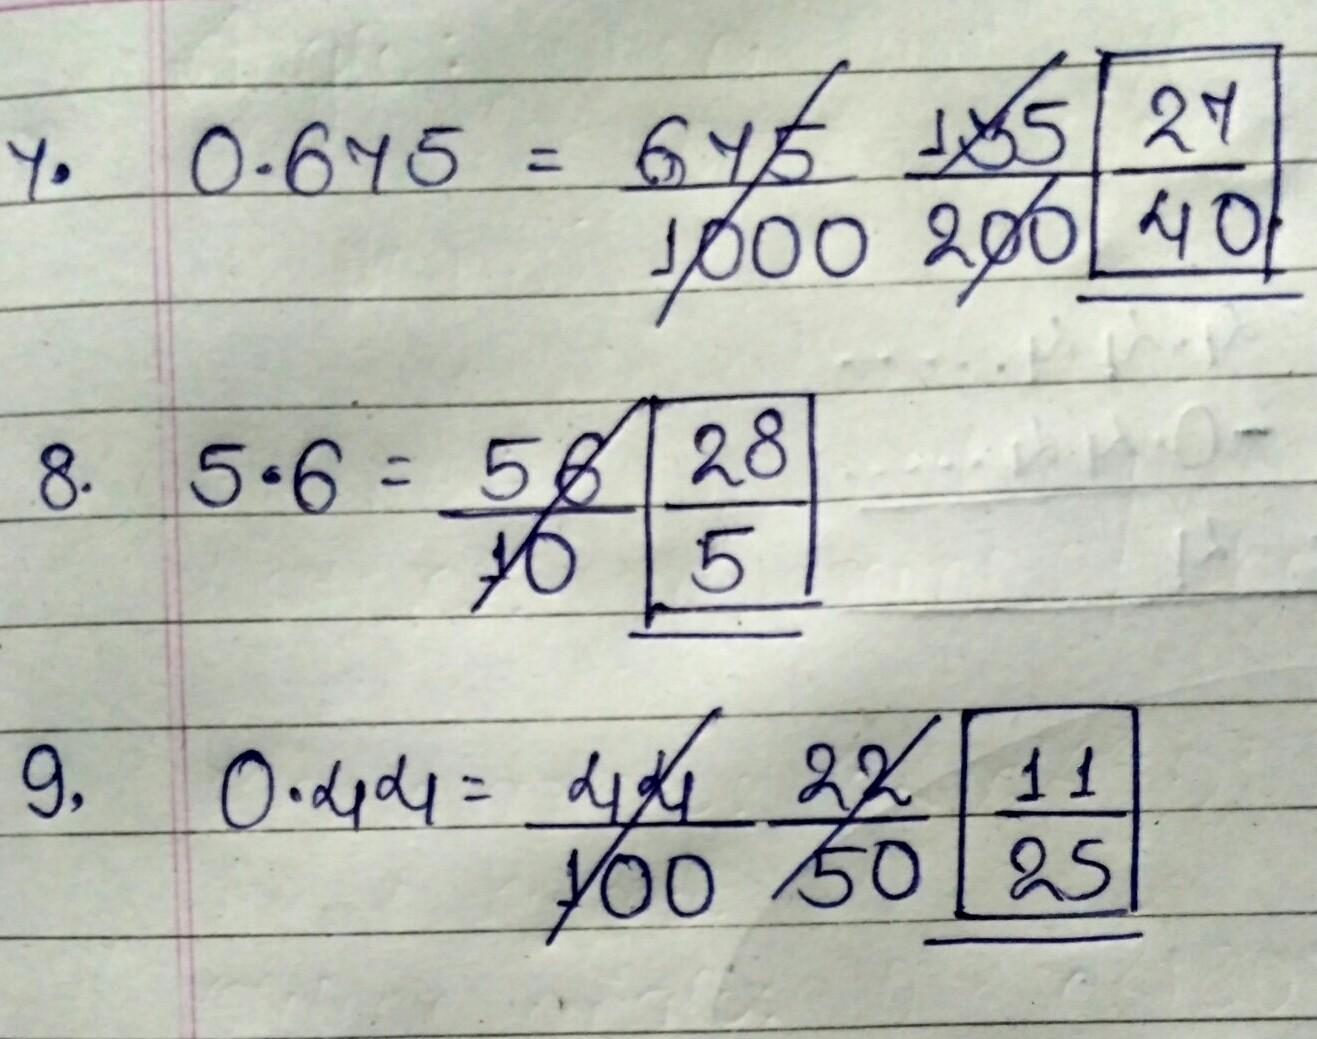 7. 0.675 = 675/1000 135/200 27/40
8. 5.6 = 56/10 28/5
9. 0.44 = 44/100 22/50 11/25